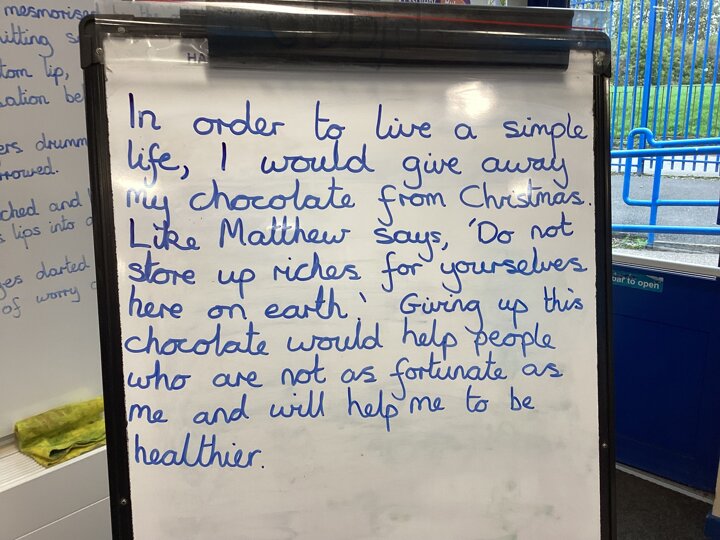 mesmorised
tom lip,
ched and
s lips into
of worry
HA
In order to live a simple
life, I would give away
my chocolate from Christmas.
Like Matthew says, 'Do not
store up riches for yourselves
here on earth.' Giving up this
chocolate would help people
who are not as fortunate as
me and will help me to be
healthier.
to open